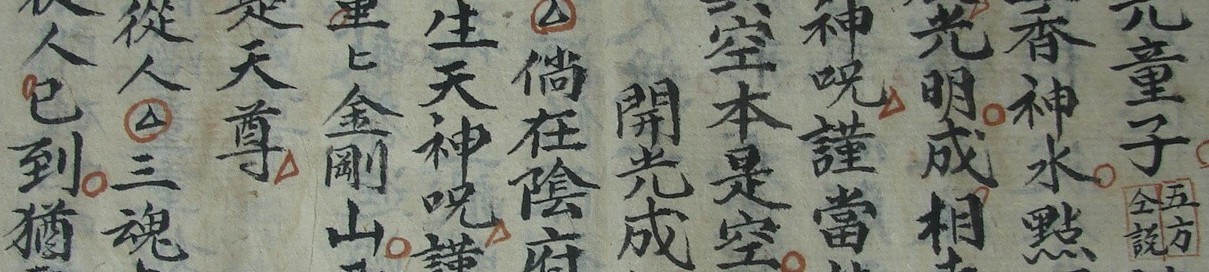 元童子 五方仝説
香神水點
光明成相
神呪謹當
空本是空
開光成
倘在陰府
生天神呪謹
重匕金剛山
是天尊
從人三魂
人已到猶